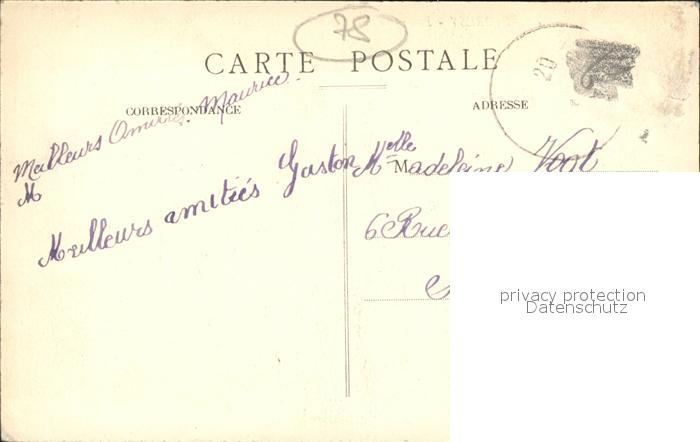 78
CARTE POSTALE
20
CORRESPONDANCE
ADRESSE
Meilleurs Amitiés. Maurice.
M
Meilleurs amitiés Gaston
Melle Madeleine
6 Rue
privacy protection
Datenschutz